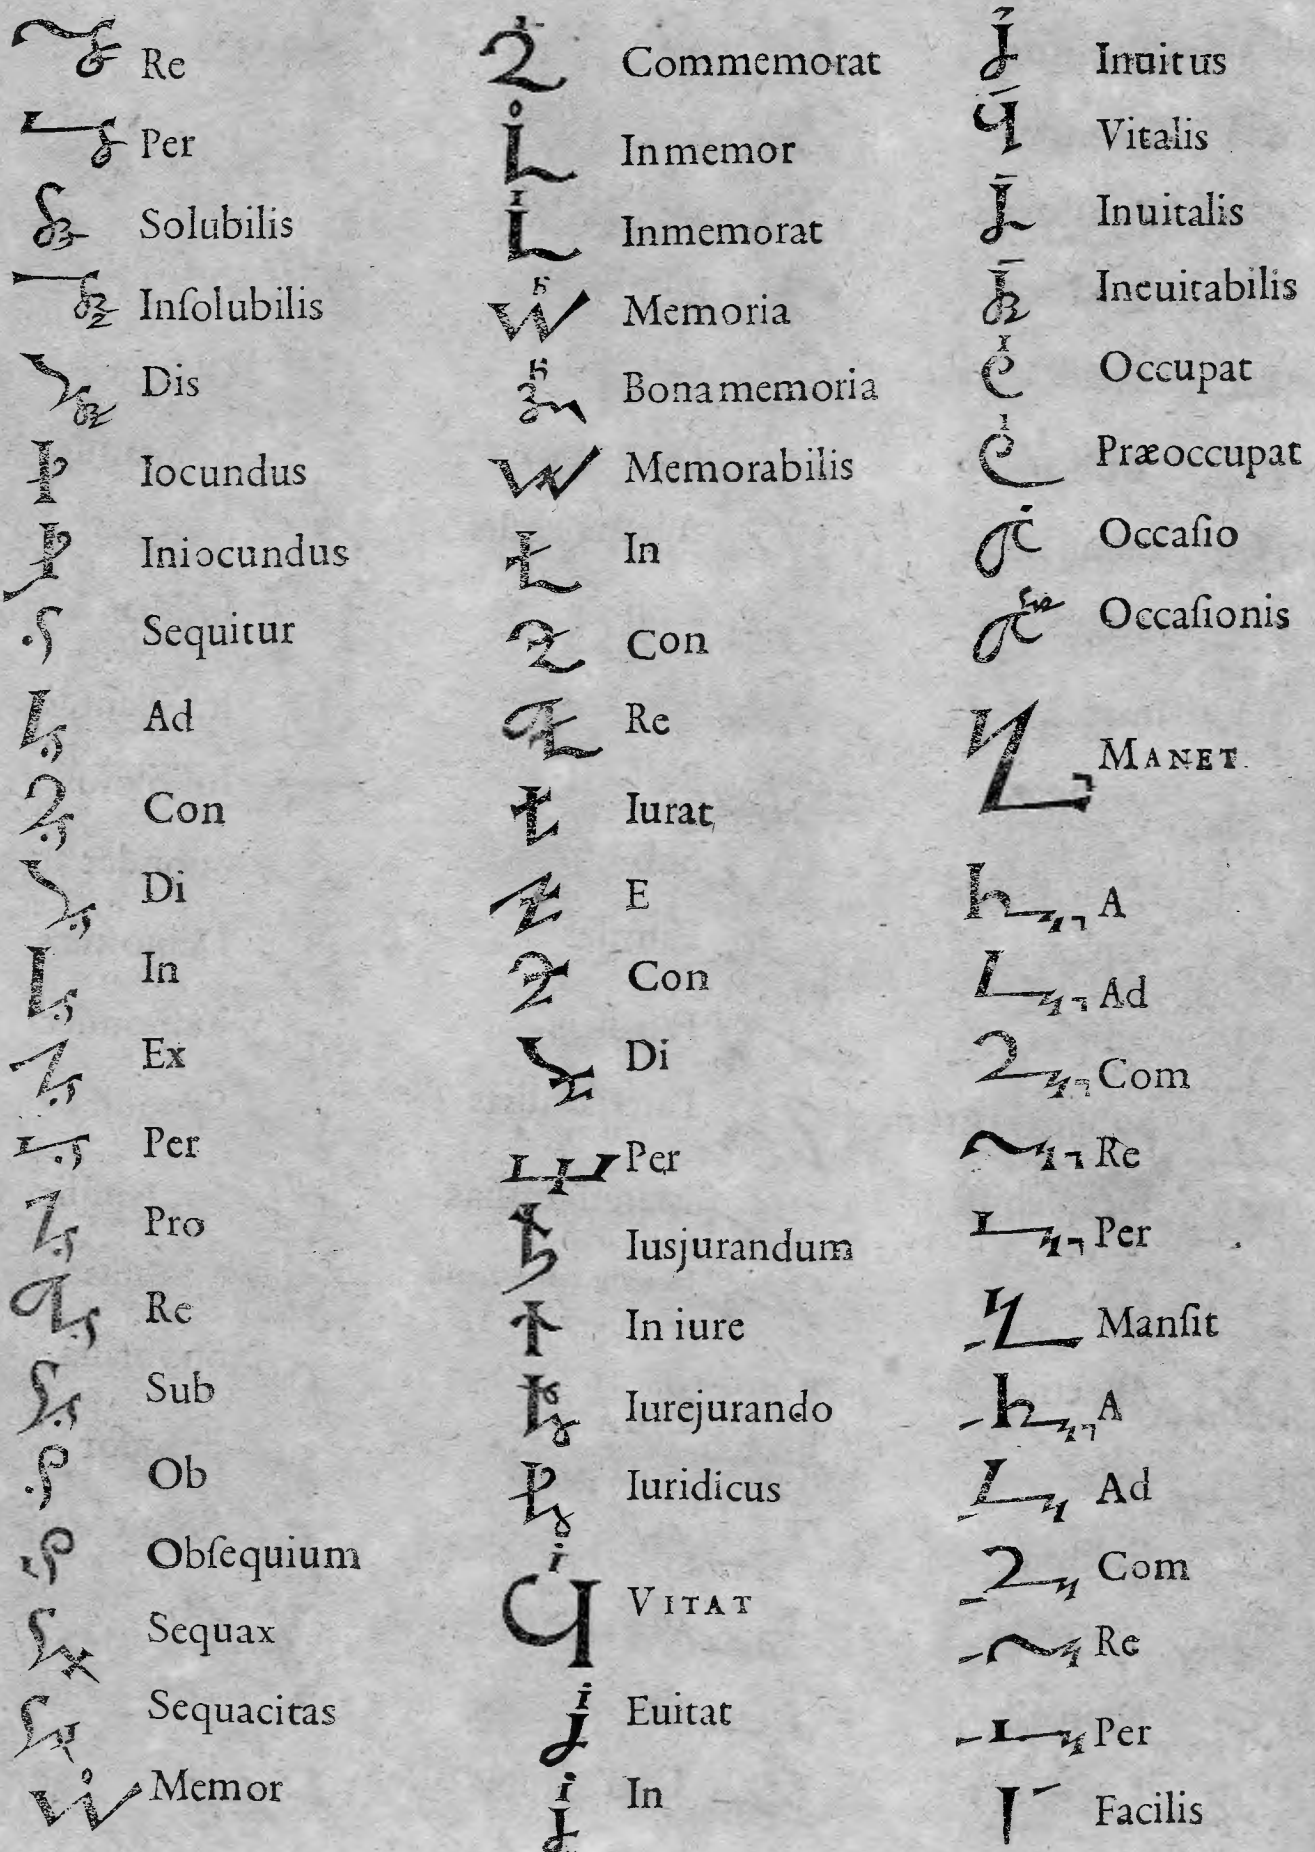 Re
Per
Solubilis
Inſolubilis
Dis
Iocundus
Iniocundus
Sequitur
Ad
Con
Di
In
Ex
Per
Pro
Re
Sub
Ob
Obſequium
Sequax
Sequacitas
Memor
Commemorat
Inmemor
Inmemorat
Memoria
Bonamemoria
Memorabilis
In
Con
Re
Iurat
E
Con
Di
Per
Iusjurandum
In iure
Iurejurando
Iuridicus
VITAT
Euitat
In
Inuitus
Vitalis
Inuitalis
Ineuitabilis
Occupat
Præoccupat
Occaſio
Occaſionis
MANET.
A
Ad
Com
Re
Per
Manſit
A
Ad
Com
Re
Per
Facilis